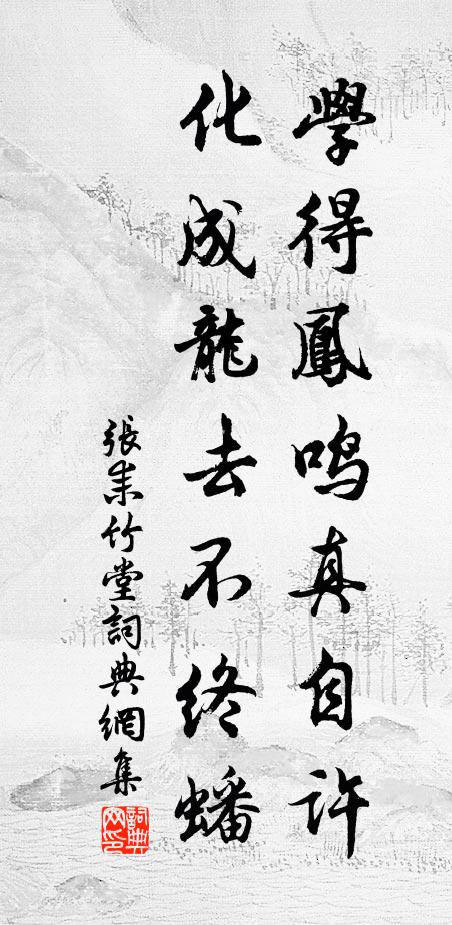 學得鳳鳴真自許
化成龍去不終蟠
張耒竹堂詞典網集
詞典网印